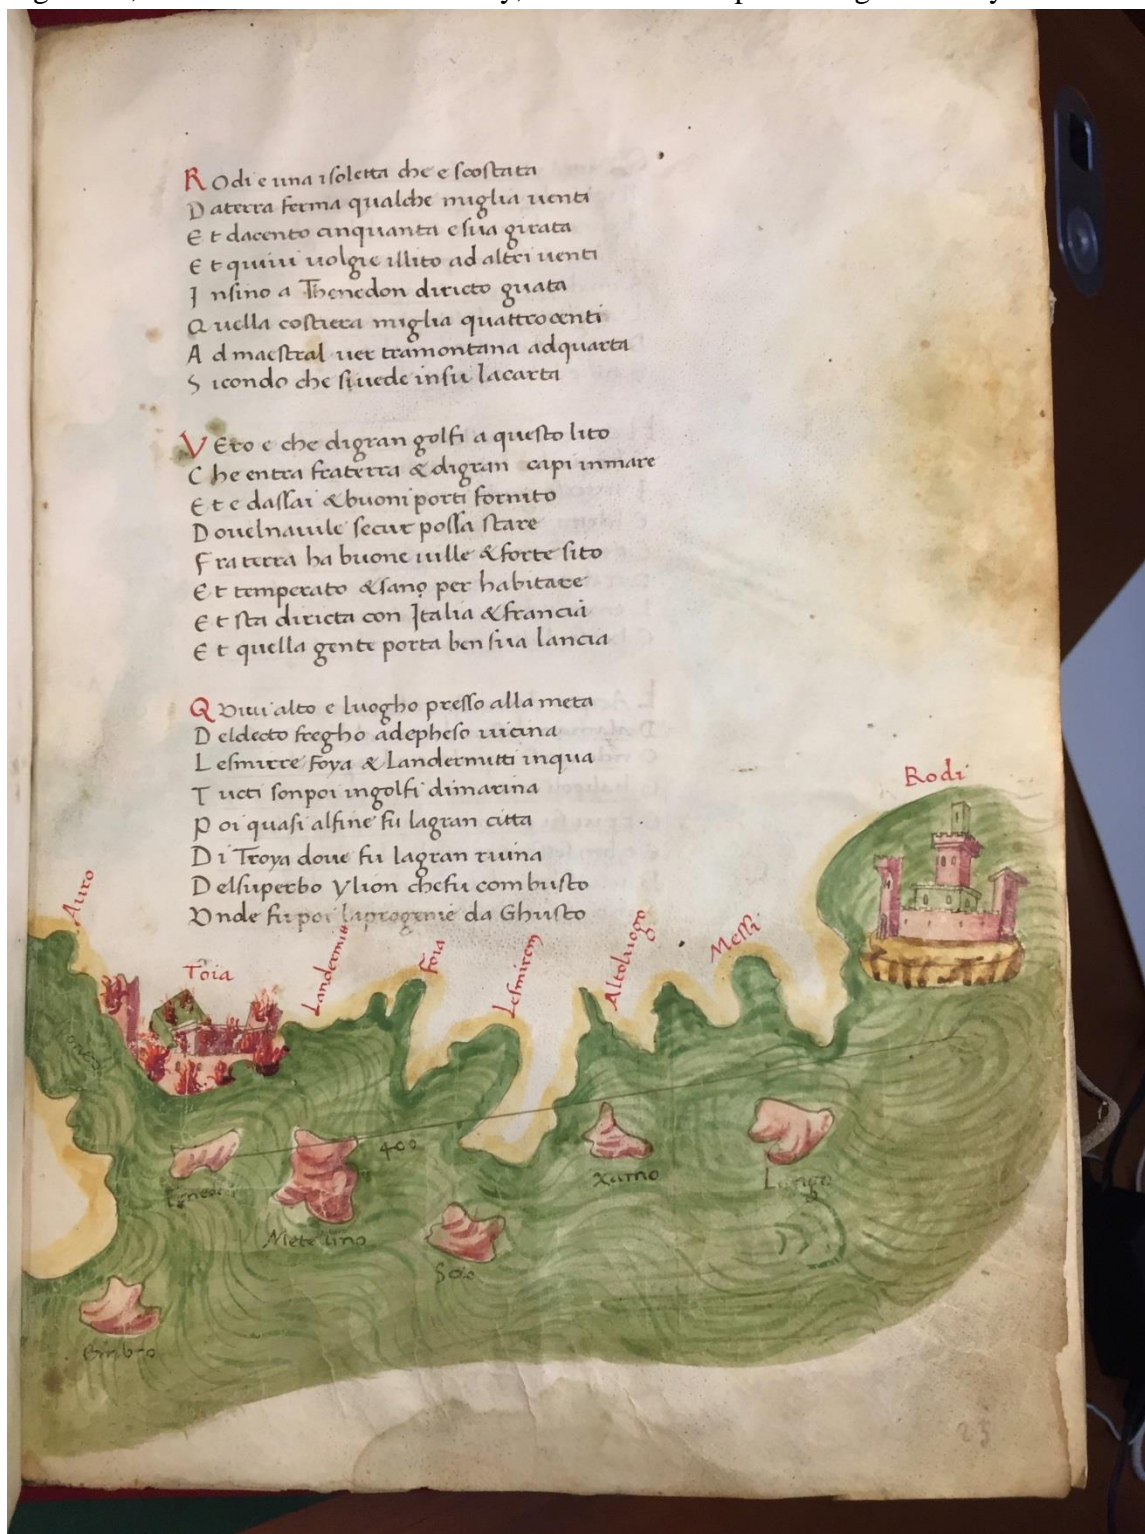 R Odi e una isoletta che e scostata
D aterra ferma qualche miglia uenti
E t dacento cinquanta e sua girata
E t quiui uolgie illito ad altri uenti
I nsino a Thenedon diricto guata
Q uella costiera miglia quattrocenti
A d maestral uer tramontana adquarta
S icondo che siuede insu lacarta
V Ero e che digran golfi a questo lito
C he entra fraterra & digran capi inmare
E t e dassai & buoni porti fornito
D ouelnauile secur possa stare
F ra terra ha buone uille & forte sito
E t temperato & sano per habitare
E t sta diricta con Italia & francia
E t quella gente porta ben sua lancia
Q Viui alto e luogho presso alla meta
D eldecto fregho adepheso uicina
L esmirre foya & Landermitti inqua
T ucti sonpoi ingolfi dimarina
P oi quasi alfine fu lagran citta
D i Troya doue fu lagran ruina
D elsuperbo ylion chefu combusto
V nde fu poi laprogenie da Ghusto
Rodi
Auro
Toia
Landermit
Foia
Lesmirem
Altoluogo
Messi
400
Metelino
Scio
Xamo
Lango
Embro
23